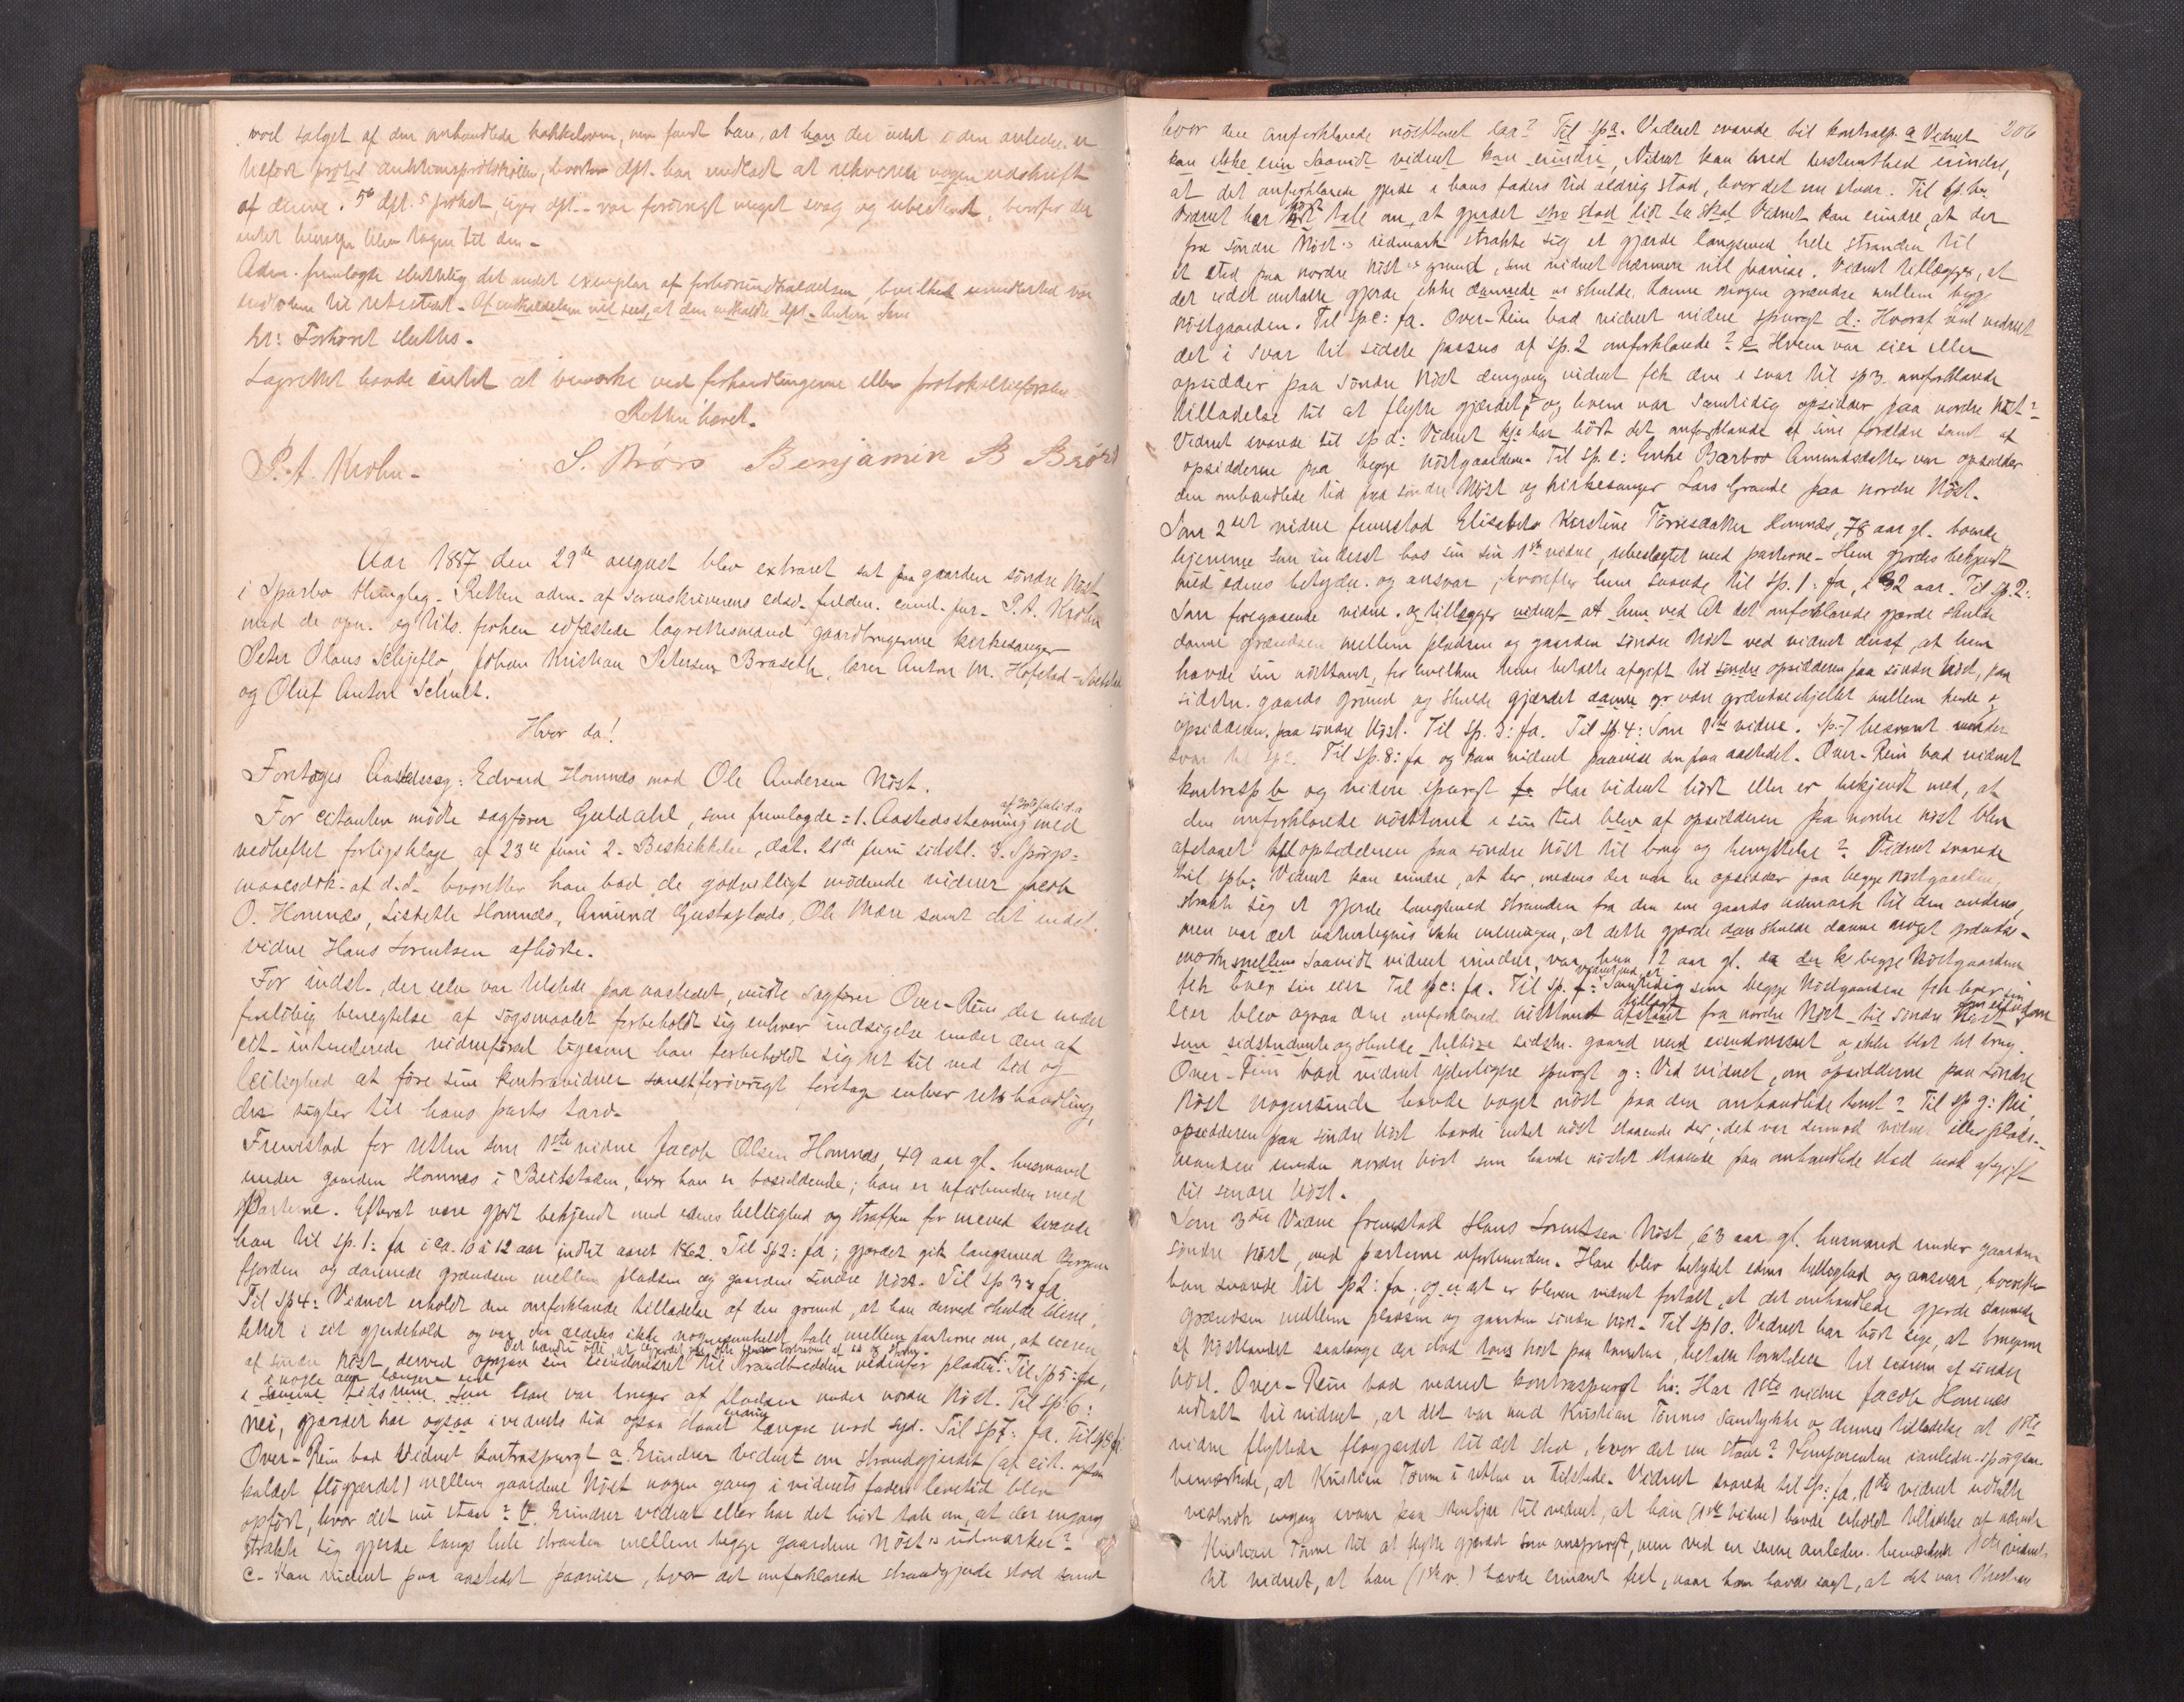 ved salget af den omhandlede kakkelovn, men fandt han, at han der intet i den anledn. er
tilført protok auktionsprotokollen, hvorfor dpt. har undladt at rekvirere nogen udskrift
af denne. dpt. var forøvrigt meget svag og ubestemt, hvorfor der
intet hensyn blev tagen til den -
Adm. fremlagte sluttelig det andet exemplar af forhørsindkaldelsen, hvilket imidlertid var
Forhøret sluttes.
Lagrettet havde intet at bemærke ved forhandlingerne eller protokoltilførslen
Retten hævet.
P. A. Krohn - S. Brørs Benjamin B Brørs
Aar 1887 den 29de august blev extraret sat paa gaarden søndre Nøst
i Sparbo thinglag. Retten adm. af sorenskriverens edsv. fuldm. cand. jur. P. A. Krohn
med de opn. og tils. forhen edfæstede lagrettesmænd gaardbrugerne kirkesanger
Peter Olaus Schjeflo, Johan Kristian Petersen Braseth, lærer Anton M. Hofstad
og Oluf Anton Schult.
Hvor da!
Foretoges Aastedssag: Edvard Homnæs mod Ole Andersen Nøst.
For citanten mødte sagfører Guldahl, som fremlagde: 1. Aastedsstevning af med
vedheftet forligsklage af 23de juni 2. Beskikkelse, dat. 21de juni sidstl. 3. Spørgs-
maalsdok. af d.d. hvorefter han bad de godvilligt mødende vidner Jacob
O. Homnæs, Lisbeth Homnæs, Amund Gustafplads, Ole Mære samt det indst.
vidne Hans Lorentsen afhørte.
For indst., der selv var tilstede paa aastedet, mødte sagfører Over-Rein der under
foreløbig benegtelse af søgsmaalet forbeholdt sig enhver indsigelse under den af
cit. intenderede vidneførsel ligesom han forbeholdt sig ret til ved tid og
leilighed at føre sine kontravidner samt forøvrigt foretage enhver retshandling,
der sigter til hans parts tarv.
Fremstod for retten som 1ste vidne Jacob Olsen Homnæs, 49 aar gl. husmand
under gaarden Homnæs i Beitstaden, hvor han er bosiddende; han er uforbunden med
Parterne. Efterat være gjort bekjendt med edens hellighed og straffen for mened svarede
han til sp. 1: ja i ca. 10 à 12 aar indtil aaret 1862. Til sp 2: ja; gjerdet gik langsmed Borgen
fjorden og dannede grændsen mellem pladsen og gaarden søndre Nøst. Til sp 3: ja.
Til Sp 4: Vidnet erholdt den omforklarede tilladelse af den grund, at han derved skulde blive
lettet i sit gjerdehold og var der aldeles ikke nogensomhelst tale mellem parterne om, at eieren
af søndre Nøst derved opgav sin eiendomsret til Strandbredden nedenfor pladsen. Til Sp 5: ja,
i nogle aar længere end
i samme tidsrum som han var bruger af pladsen under nordre Nøst. Til sp. 6:
nei, gjærdet har ogsaa i vidnets tid ogsaa staaet endnu længre mod syd. Til sp 7: ja. Til sp 8: ja
Over-Rein bad Vidnet kontraspurgt a. Erindrer vidnet om strandgjerdet (af cit. ogsaa
kaldet fløgjerdet) mellem gaardene Nøst nogen gang i vidnets faders levetid blev
opført, hvor det nu staar? b. Erindrer vidnet eller har det hørt tale om, at der engang
strakte sig gjerde langs hele stranden mellem begge gaardene Nøsts udmarker?
c. Kan vidnet paa aastedet paavise, hvor det omforklarede strandgjerde stod samt
206
hvor den omforklarede nøsttomt laa? Til sp a. Vidnet svarede til kontrasp. a Vidnet
kan ikke erin Saavidt vidnet kan erindre, Vidnet kan med bestemthed erindre,
at det omforklarede gjerde i hans faders tid aldrig stod, hvor det nu staar. Til sp. b.
Vidnet har hørt tale om, at gjerdet Vidnet kan erindre, at der
fra søndre Nøst's udmark strakte sig et gjærde langsmed hele stranden til
et sted paa nordre Nøst's grund, som vidnet nærmere vil paavise. Vidnet tillægger, at
det sidst omtalte gjerde ikke dannede el skulde danne nogen grændse mellem begge
Nøstgaardene. Til sp c: ja. Over-Rein bad vidnet videre spurgt d: Hvoraf ved vidnet
det i svar til sidste passus af sp. 2 omforklarede? e Hvem var eier eller
opsidder paa søndre Nøst dengang vidnet fik den i svar til sp 3. omforklarede
tilladelse til at flytte gjærdet, og hvem var samtidig opsidder paa nordre Nøst?
Vidnet svarede til sp d: Vidnet har hørt det omforklarede af sine forældre samt af
opsidderne paa begge nøstgaardene. Til sp. e: Enke Barbro Amundsdatter var opsidder
den omhandlede tid paa søndre Nøst og kirkesanger Lars Grande paa nordre Nøst.
Som 2det vidne fremstod Elisabeth Kirstine Tørrisdatter Homnæs, 78 aar gl. boende
hjemme som inderst hos sin søn 1ste vidne, ubeslægtet med parterne. Hun gjordes bekjendt
med edens betydn. og ansvar, hvorefter hun svarede til sp. 1: ja, i 32 aar. Til sp. 2:
Som foregaaende vidne. og tillægger vidnet at hun ved At det omforklarede gjerde skulde
danne grændsen mellem pladsen og gaarden søndre Nøst ved vidnet deraf, at hun
havde sin nøsttomt, for hvilken hun betalte afgift til søndre opsidderen paa søndre Nøst, paa
sidstn. gaards grund og skulde gjærdet danne gr være grændseskjellet mellem hende &
opsidderen paa søndre Nøst. Til Sp. 3: ja. Til sp. 4: Som 1ste vidne. Sp. 7 besvaret under
svar til sp 2. Til sp. 8: ja og kan vidnet paavise den paa aastedet. Over-Rein bad vidnet
kontrasp b og videre spurgt f: Har vidnet hørt eller er bekjendt med, at
den omforklarede nøsttomt i sin tid blev af opsidderen paa nordre nøst blev
afstaaet til opsidderen paa søndre Nøst til brug og benyttelse? Vidnet svarede
til sp b: Vidnet kan erindre, at der, medens der var en opsidder paa begge Nøstgaardene,
strakte sig et gjerde langsmed stranden fra den ene gaards udmark til den andens,
men var det naturligvis ikke meningen, at dette gjerde skulde danne noget grændse-
mærke mellem Saavidt vidnet erindrer, var hun 12 aar gl. da begge Nøstgaardene
fik hver sin eier Til sp c: ja. Til Sp. f: Samtidig som begge Nøstgaardene fik hver sin
eier blev ogsaa den omforklarede nøsttomt tillagt fra nordre Nøst til søndre Nøst som eiendom
som sidstnævnte og skulde tilhøre sidstn. gaard med eiendomsret og ikke blot til brug.
Over-Rein bad vidnet yderligere spurgt g: Ved vidnet, om opsidderne paa søndre
Nøst nogensinde havde noget nøst paa den omhandlede tomt? Til sp g: Nei,
opsidderen paa søndre Nøst havde intet nøst staaende der; det var derimod vidnet eller plads-
manden under nordre Nøst som havde nøstet staaende paa omhandlede sted mod afgift
til søndre Nøst.
Som 3die Vidne fremstod Hans Lorentsen Nøst, 63 aar gl. husmand under gaarden
søndre Nøst, med parterne uforbunden. Han blev betydet edens hellighed og ansvar, hvorefter
han svarede til sp 2: ja; og er det bleven vidnet fortalt, at det omhandlede gjerde dannede
grændsen mellem pladsen og gaarden søndre Nøst. Til sp 10. Vidnet har hørt sige, at brugerne
af Nøstlandet saalænge der stod nøst paa tomten, betalte tomteleie til eieren af søndre
Nøst. Over-Rein bad vidnet kontraspurgt h: Har 1ste vidne Jacob Homnæs
udtalt til vidnet, at det var med Kristian Tønnes samtykke og dennes tilladelse at 1ste
vidne flyttede fløgjærdet til det sted, hvor det nu staar? Komparenten i anledn. spørgsm.
bemærkede, at Kristian Tønne i retten er tilstede. Vidnet svarede til Sp: ja, 1ste vidnet udtalte
engang til vidnet, at han (1ste vidne) havde erholdt tilladelse af nævnte
Kristian Tønne til at flytte gjerdet som omspurgt, men ved en senere anledn. bemærkede 1ste vidnet
til vidnet, at han (1ste v.) havde erindret feil, naar han havde sagt, at det var Kristian